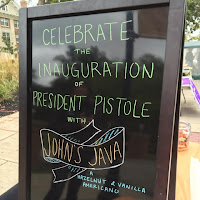 CELEBRATE
THE
INAUGURATION
OF
PRESIDENT PISTOLE
WITH
JOHN'S JAVA
A
HAZELNUT & VANILLA
AMERICANO